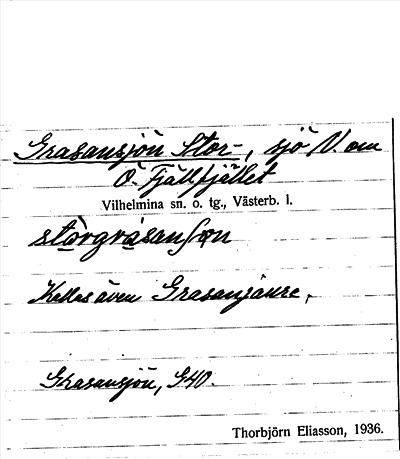 Grasansjön Stor-, sjö V. om
Ö. Fjällfjället
Vilhelmina sn. o. tg., Västerb. l.
Kallas även Grasanjaure.
Grasansjön, G40.
Thorbjörn Eliasson, 1936.